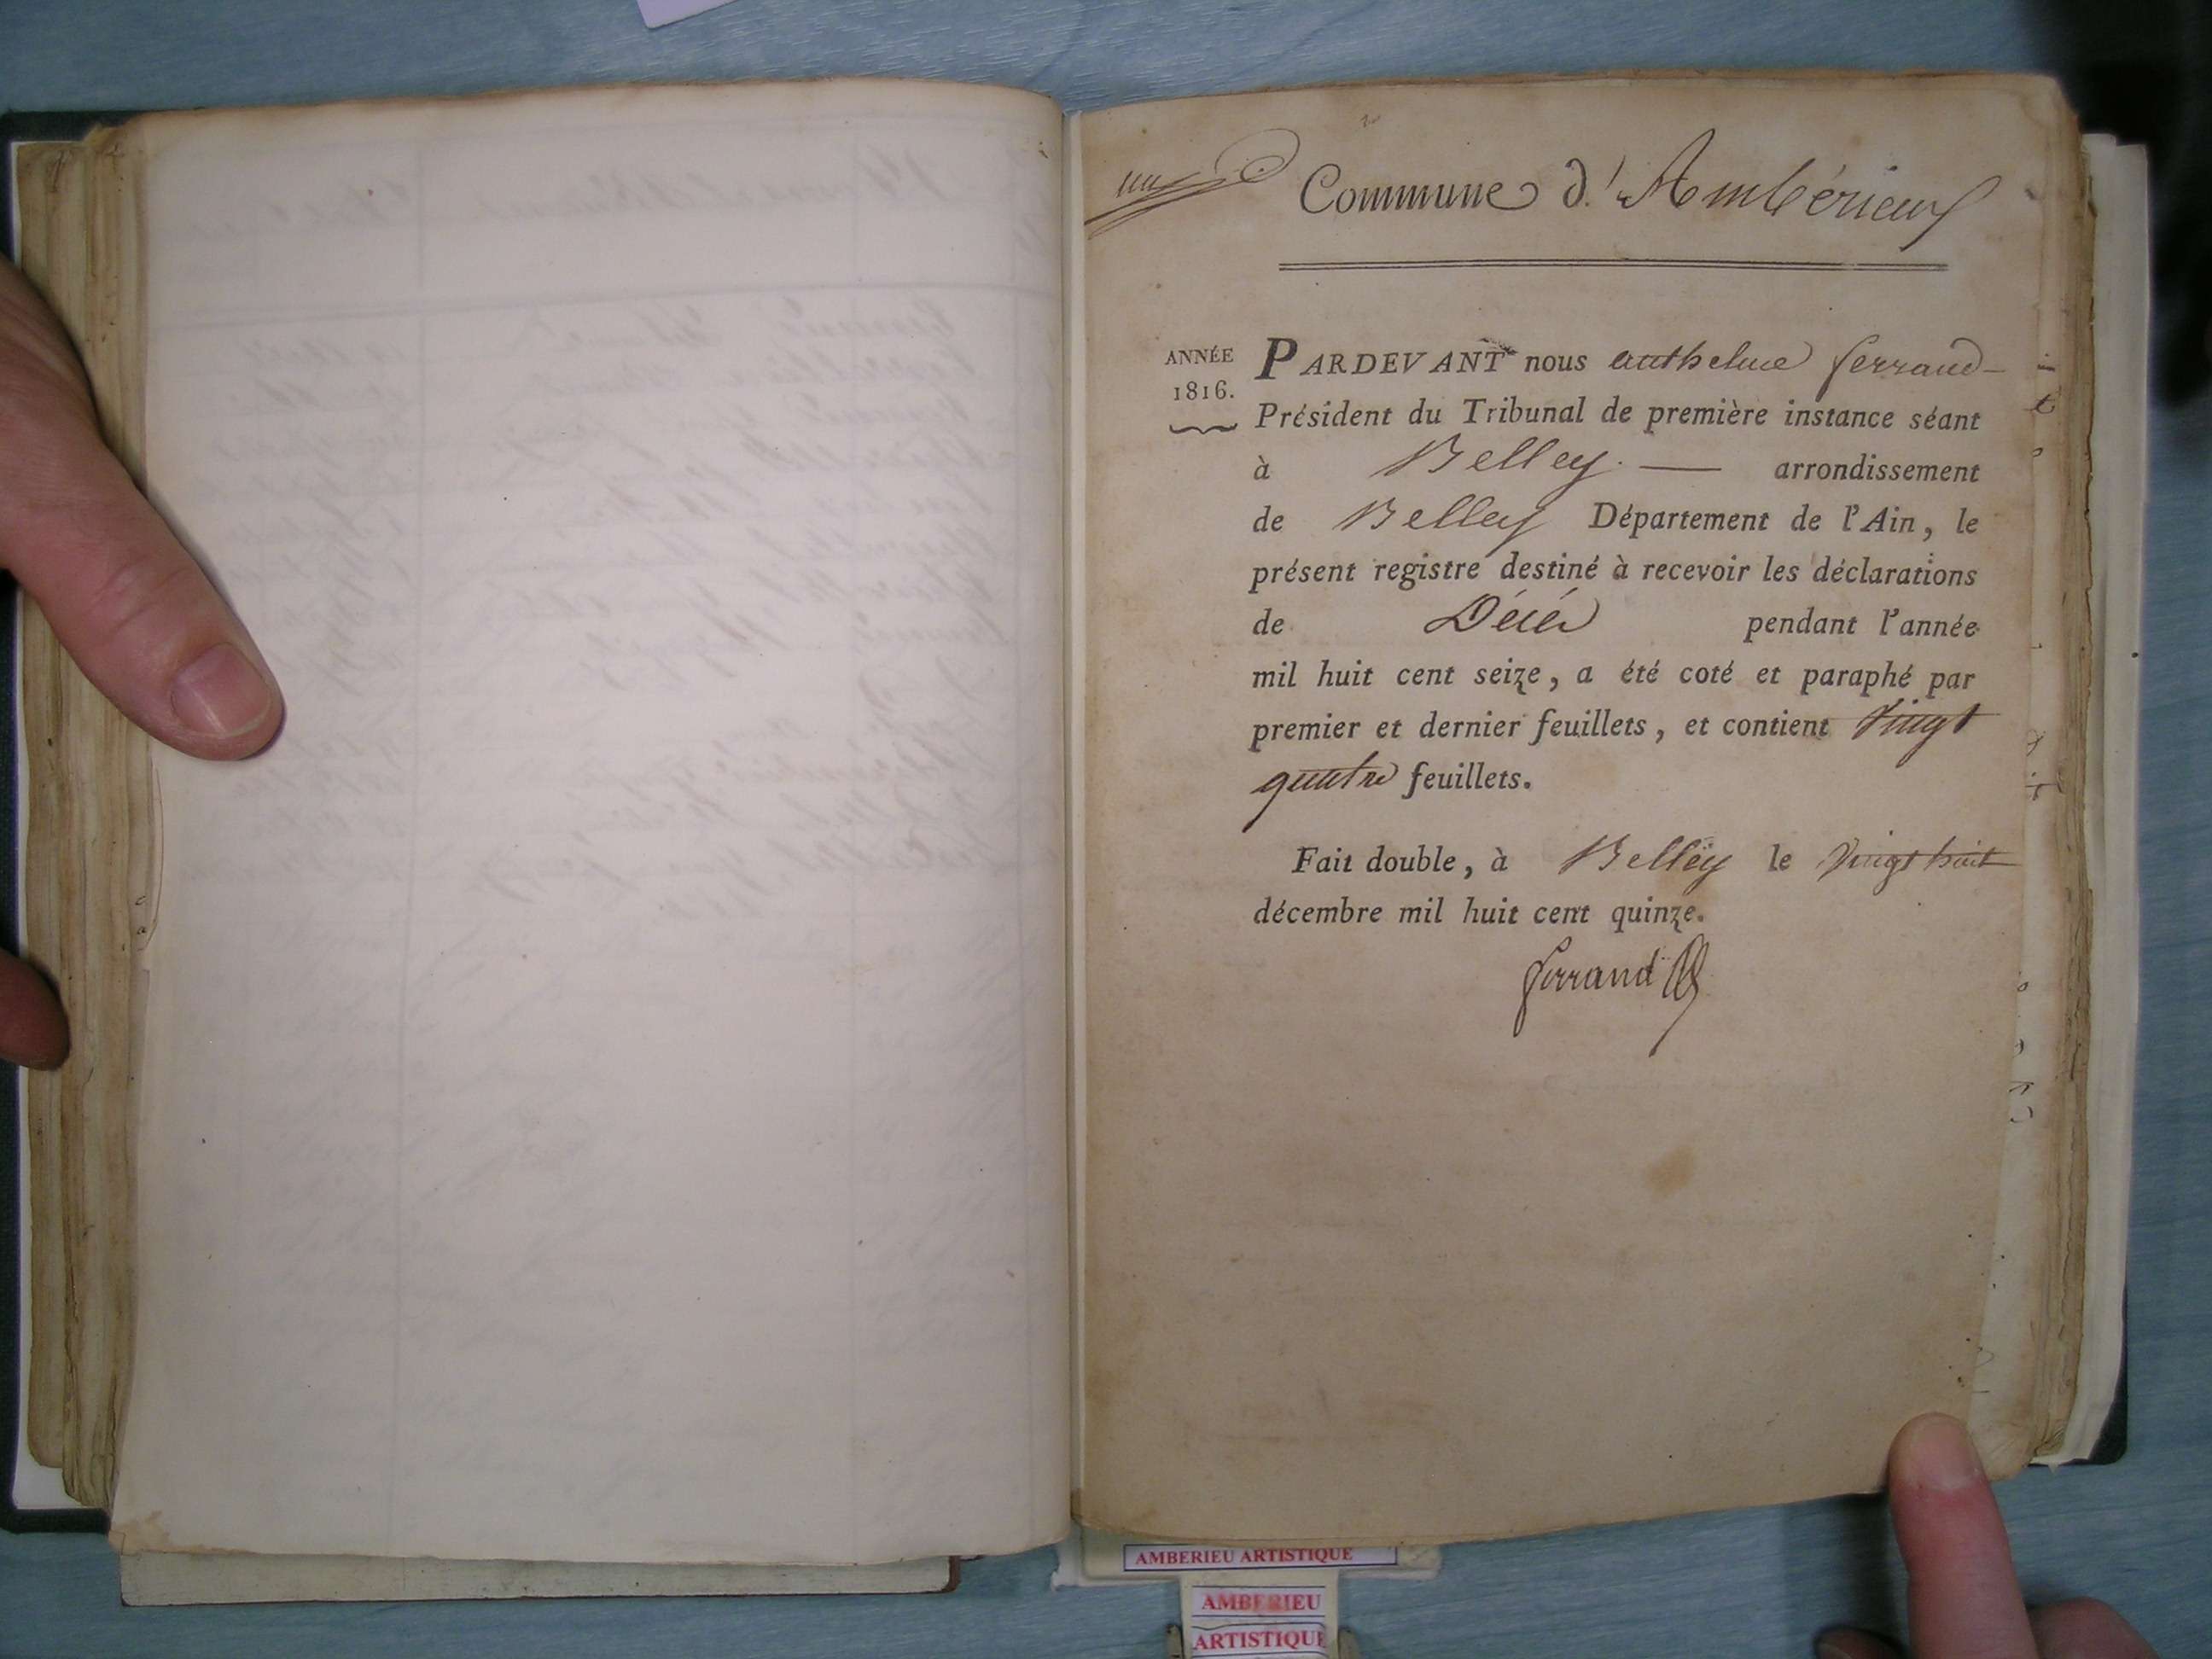 Commune d'Ambérieux
ANNÉE
1816.
PARDEVANT nous anthelme ferrand
Président du Tribunal de première instance séant
à Belley. — arrondissement
de Belley Département de l'Ain, le
présent registre destiné à recevoir les déclarations
de Décès pendant l'année
mil huit cent seize, a été coté et paraphé par
premier et dernier feuillets, et contient Vingt
quatre feuillets.
Fait double, à Belley le vingt huit
décembre mil huit cent quinze.
ferrand
AMBERIEU ARTISTIQUE
AMBERIEU
ARTISTIQUE